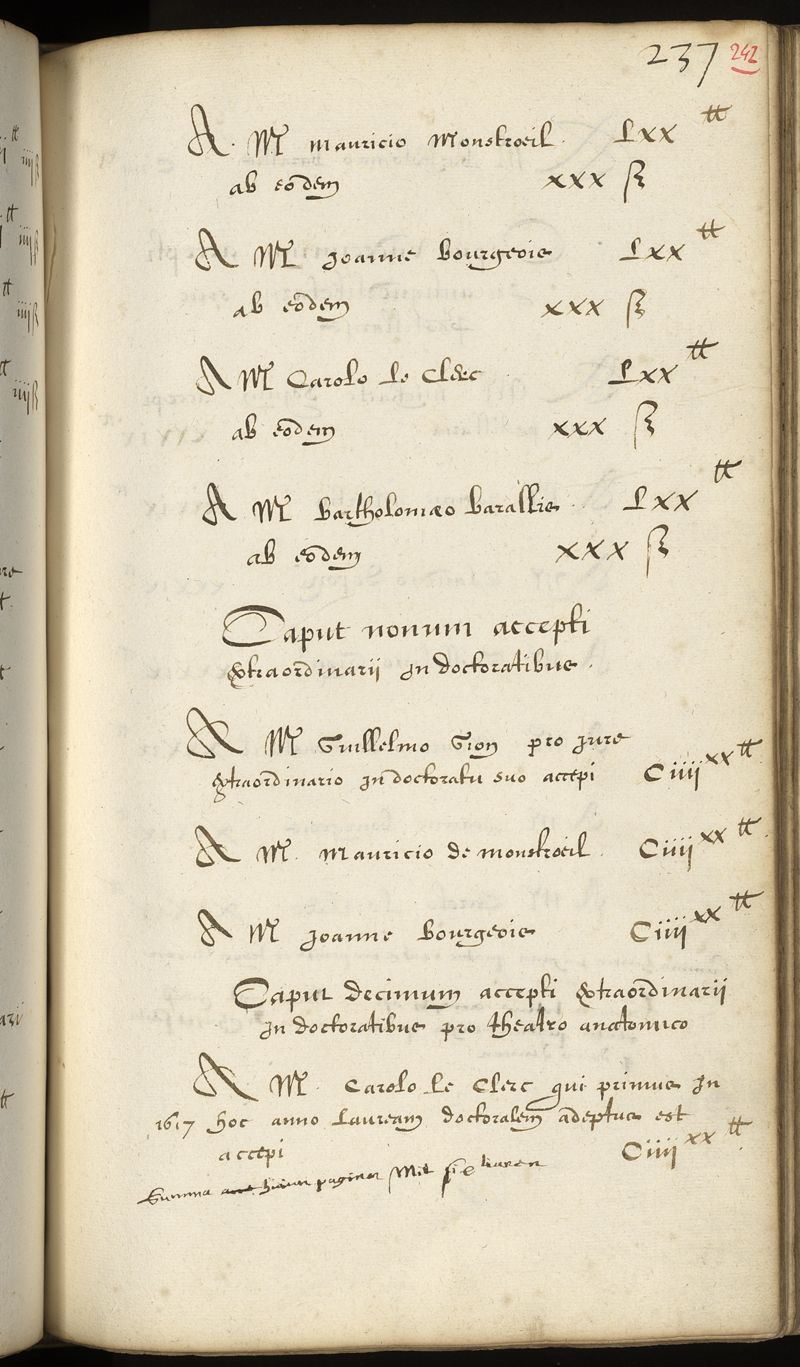 237 242
A. M. Mauricio Monstroeil. Lxx tt
ab eodem xxx ß
A M. Joanne Bourgeois Lxx tt
ab eodem xxx ß
A M. Carolo le Clerc Lxx tt
ab eodem xxx ß
A M. Bartholomæo Barallis Lxx tt
ab eodem xxx ß
Caput nonum accepti
extraordinarii in doctoratibus.
A M. Guillelmo Gion pro jure
extraordinario in doctoratu suo accepi Ciiij xx tt
A M. Mauricio de monstroeil. Ciiij xx tt
A M. Joanne Bourgeois Ciiij xx tt
Caput decimum accepti extraordinarii
in doctoratibus pro theatro anatomico
A M. Carolo le Clerc qui primus in
1617 hoc anno lauream doctoralem adeptus est
accepi Ciiij xx tt
Summa huius paginae